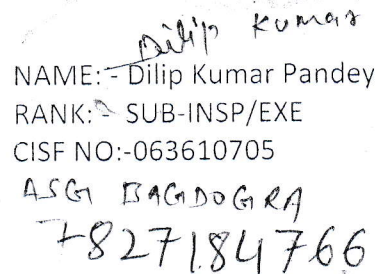 Dilip Kumar
NAME:- Dilip Kumar Pandey
RANK:- SUB-INSP/EXE
CISF NO:-063610705
ASG BAGDOGRA
-827184766